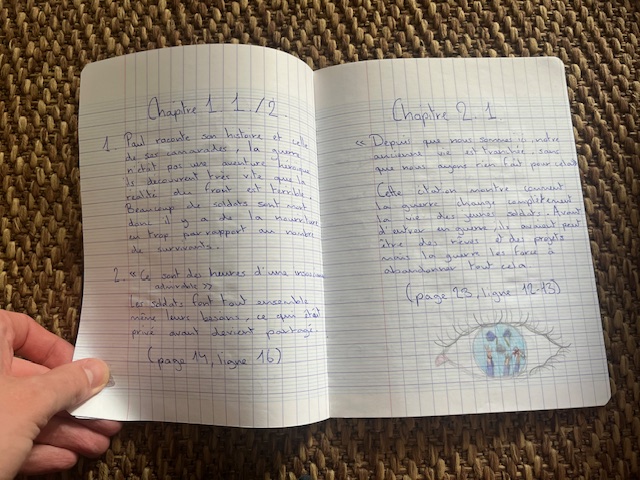 Chapitre 1 1/2.
1. Paul raconte son histoire et celle
de ses camarades, la guerre
n'était pas une aventure héroïque
ils découvrent très vite que la
réalité du front est terrible.
Beaucoup de soldats sont mort
donc il y a de la nourriture
en trop par rapport au nombre
de survivants.
2. « Ce sont des heures d'une
admirable »
Les soldats font tout ensemble
même leurs besoins, ce qui était
privé avant devient partagé.
(page 14, ligne 16)
Chapitre 2.1
« Depuis que nous sommes ici, notre
ancienne vie est tranchée, sans
que nous ayons rien fait pour cela »
Cette citation montre comment
la guerre change complètement
la vie des jeunes soldats. Avant
d'entrer en guerre, ils avaient peut
être des rêves et des projets
mais la guerre les force à
abandonner tout cela
(page 23, ligne 12-13)